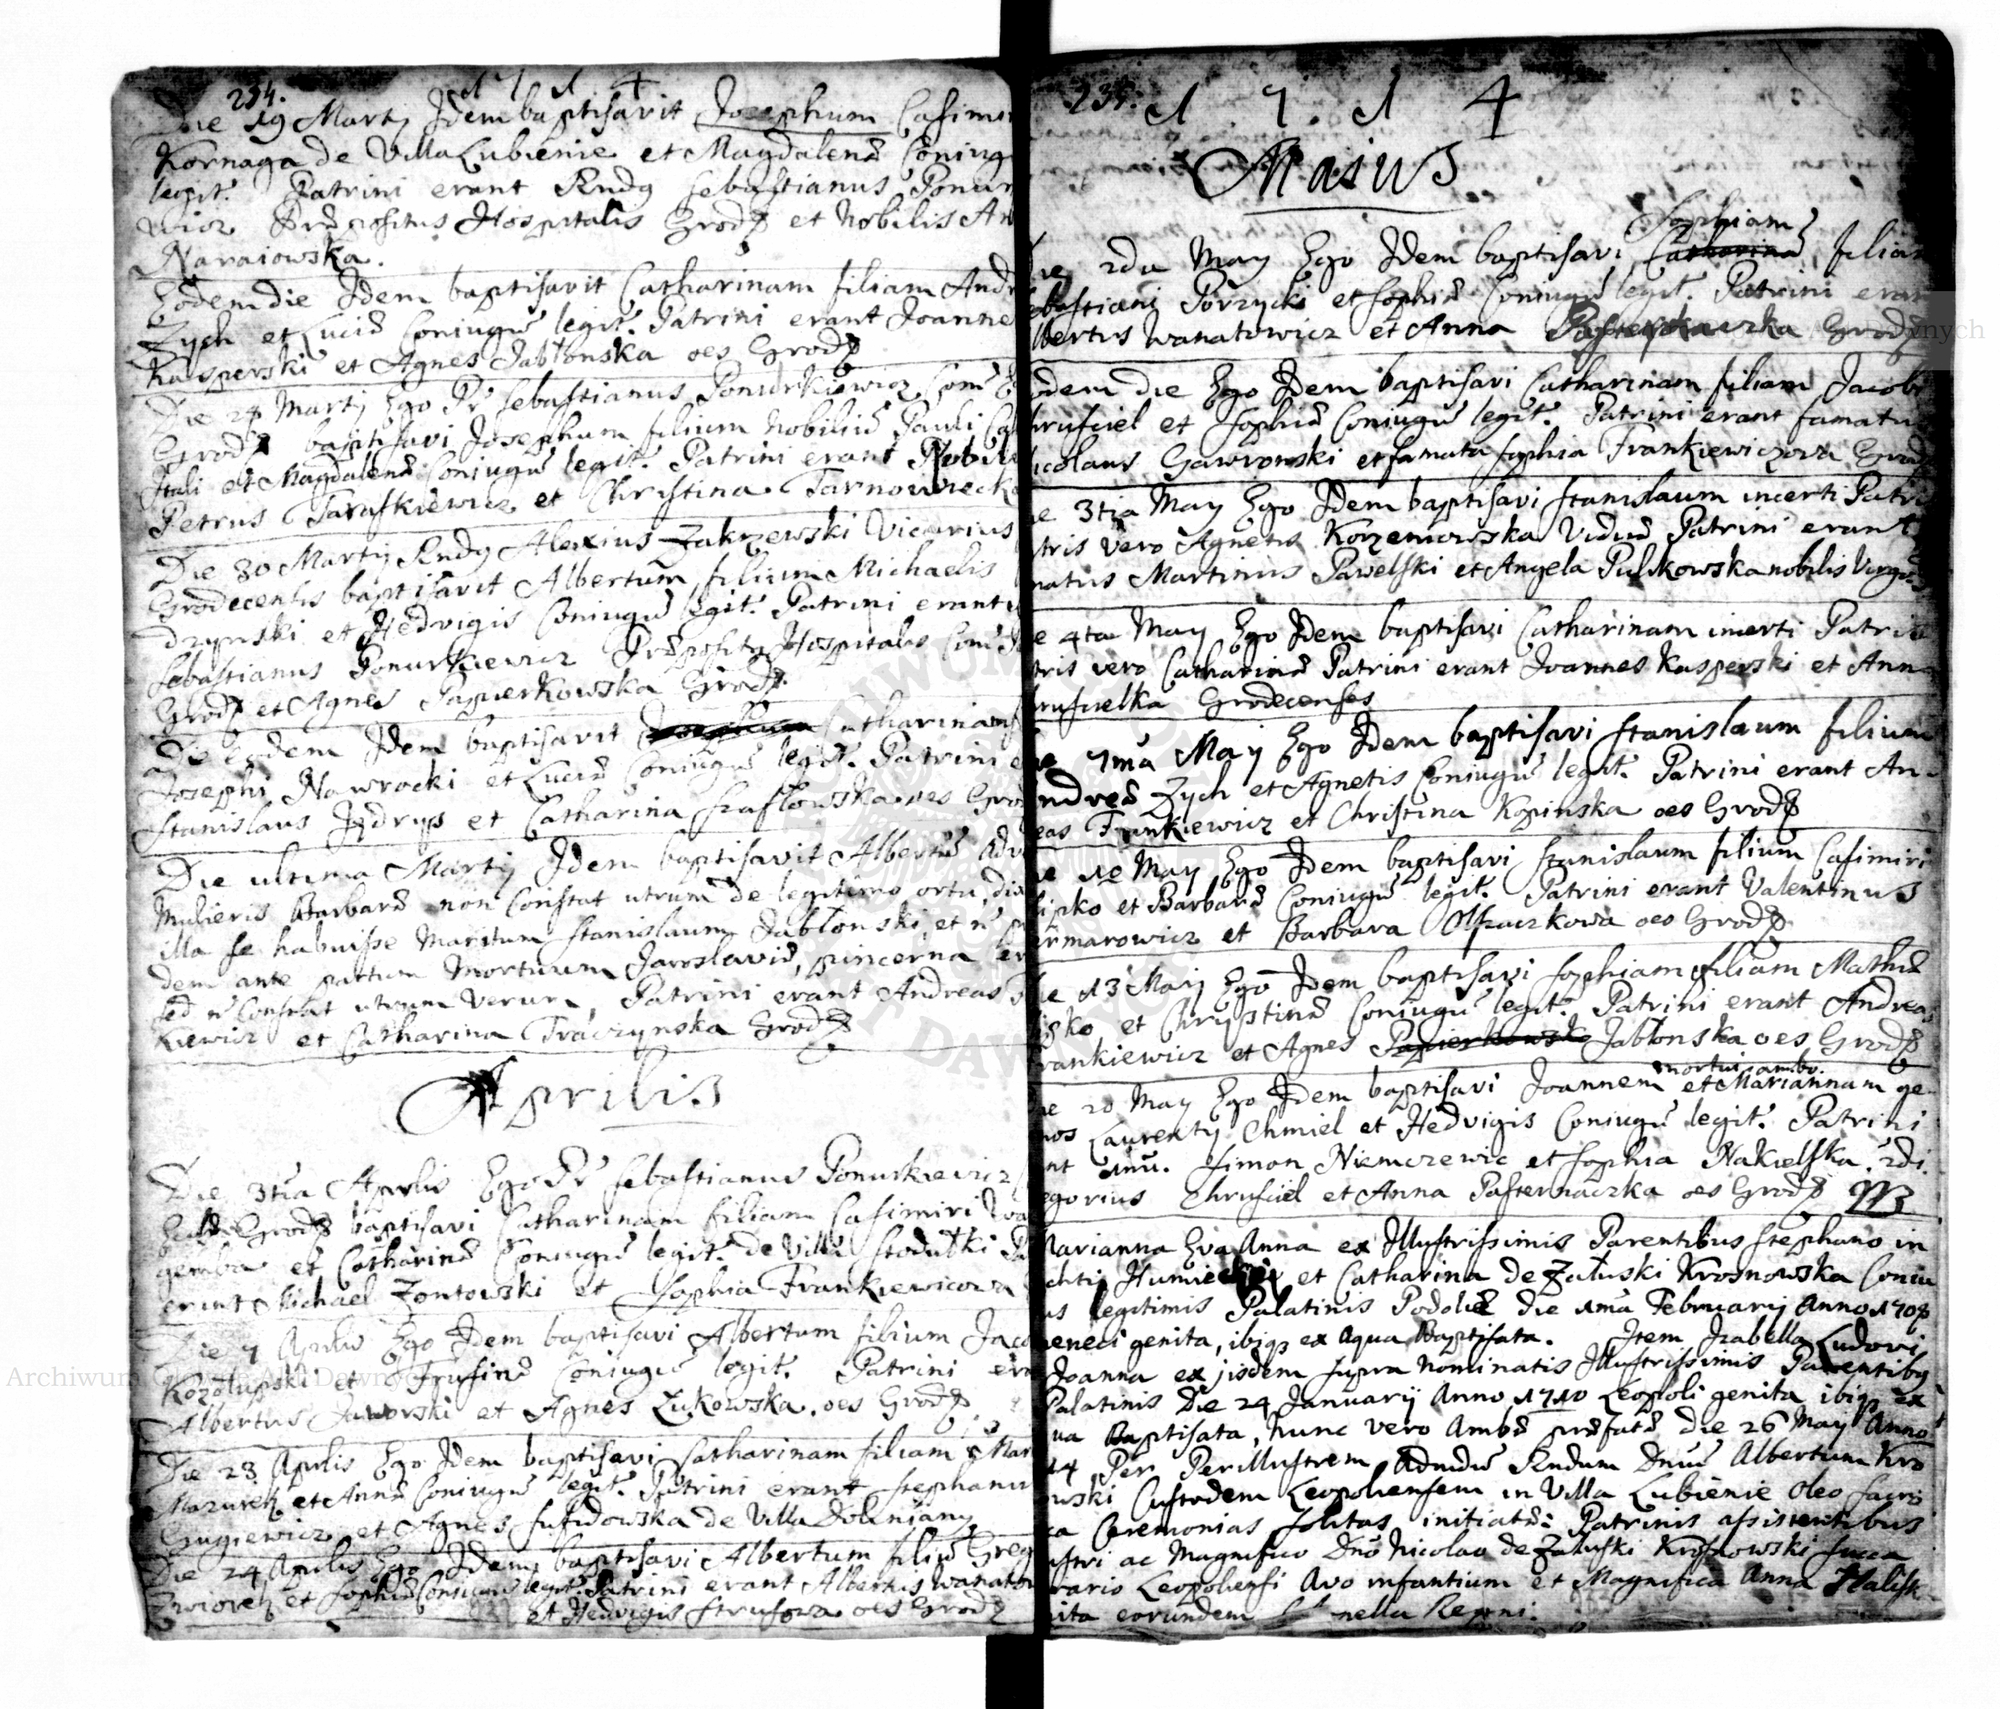 234. 1 7 1 4
Die 19 Martij Idem baptisavit Josephum Casimi
Kornaga de Villa Lubienie et Magdalenæ Coniug
legit. Patrini erant Rndg Sebastianus Ponur
wicz Præpositus Hospitalis Grod et Nobilis An
Naraiowska.
Eodem die Idem baptisavit Catharinam filiam Andr
Zych et Luciæ Coniugu legit. Patrini erant Joanne
Kasperski et Agnes Jabłonska oes Grod
Die 24 Martij Ego Pr Sebastianus Ponurkiewicz Com
Grod baptisavi Josephum filium Nobiliu Pauli Ca
Itali et Magdalenæ Coniugu legit. Patrini erant Nobil
Petrus Taraskiewicz et Christina Tarnowieck
Die 30 Martij Rndg Alexius Zakrzewski Vicarius
Grodecensis baptisavit Albertum filium Michaelis
dzynski et Hedvigis Coniugu legit. Patrini erant
Sebastianus Ponurkiewicz Præposity Hospitalis Com
Grod et Agnes Papierkowska Grod
Die eadem Idem baptisavit Josephum Catharinam
Josephi Nawrocki et Luciæ Coniugu legit. Patrini e
Stanislaus Jędrys et Catharina Szaflowska oes Grod
Die ultima Martij Idem baptisavit Albertu adv
Mulieris Barbaræ non Constat utrum de legitimo ortu, di
illa se habuisse Maritum Stanislaum Jabłonski, et
dem ante partum Mortuum Jaroslaviæ, pincerna
sed n Constat utrum Verum, Patrini erant Andreas
kiewicz et Catharina Traczynska Grod
Aprilis
Die 3tia Aprilis Ego Pr Sebastianus Ponurkiewicz
Grod baptisavi Catharinam filiam Casimiri
gemba et Catharinæ Coniugu legit. de Villa Stodułki Pa
erant Michael Zontowski et Sophia Frankiewicowa
Die 7 Aprilis Ego Idem baptisavi Albertum filium Jac
Kozołupski et Fruzinæ Coniugu legit. Patrini era
Albertus Jaworski et Agnes Zukowska oes Grod
Die 23 Aprilis Ego Idem baptisavi Catharinam filiam Mar
Mazurek et Annæ Coniugu legit. Patrini erant Stephanu
Gugiewicz et Agnes Susidowska de Villa Doliniany
Die 24 Aprilis Ego Idem baptisavi Albertum filiu Greg
et Sophiæ Coniugu legit. Patrini erant Albertus Wanatow
et Hedvigis Strusowa oes Grod
235. 1 7 1 4
Maius
Sophiam
ie 2da May Ego Idem baptisavi Catharinæ, filiam
ebastiani Porzycki et Sophiæ Coniugu legit. Patrini eran
lbertus Wanatowicz et Anna Pasternaczka Grod
odem die Ego Idem baptisavi Catharinam filiam Jacobi
hrusciel et Sophiæ Coniugu legit. Patrini erant famatus
icolaus Gawronski et famata Sophia Frankiewiczowa Grod
ie 3tia May Ego Idem baptisavi Stanislaum incerti Patri
tris vero Agnetis Korzeniowska Viduæ Patrini erant
matus Martinus Pawelski et Angela Pulikowska nobilis Virgo
e 4ta May Ego Idem baptisavi Catharinam incerti Patris
tris vero Catharinæ Patrini erant Joannes Kasperski et Anna
hruscielka Grodecenses
ie 7ma May Ego Idem baptisavi Stanislaum filium
ndreæ Zych et Agnetis Coniugu legit. Patrini erant An-
eas Frankiewicz et Christina Kopinska oes Grod
ie 10 May Ego Idem baptisavi Stanislaum filium Casimiri
lipko et Barbaræ Coniugu legit. Patrini erant Valentinus
ermarowicz et Barbara oes Grod
ie 13 May Ego Idem baptisavi Sophiam filiam Mathiæ
et Chrystinæ Coniugu legit. Patrini erant Andreas
rankiewicz et Agnes Papierkowska Jabłonska oes Grod
mortui ambo.
ie 20 May Ego Idem baptisavi Joannem et Mariannam ge-
nos Laurenty Chmiel et Hedvigis Coniugu legit. Patrini
ant 1mi. Simon Niemczewic et Sophia Nakielska, 2di
egorius Chrusciel et Anna Pasternaczka oes Grod NB
arianna Eva Anna ex Illustrissimis Parentibus Stephano in
chtij Humiecki et Catharina de Załuski Krosnowska Coniu
us legitimis Palatinis Podoliæ die 1ma Februarij Anno 1708
eneci genita, ibiq ex Aqua Baptisata. Item Izabella Ludovi
Joanna ex ijsdem supra Nominatis Illustrissimis Parentibq
Palatinis Die 24 Januarij Anno 1710 Leopoli genita ibiq ex
ua Baptisata, nunc vero Ambæ præfatæ die 26 May Anno
14 Per Perillustrem Admdu Rndum Dnu Albertum Kro
owski Custodem Leopoliensem in Villa Lubienie Oleo Sacro
ca Ceremonias Solitas initiatæ: Patrinis assistentibus
ustri ac Magnifico Dno Nicolao de Załuski Krosnowski Succa
rario Leopoliensi Avo infantium et Magnifica Anna
ita eorundem nella Regni.
Archiwum Główne Akt Dawnych